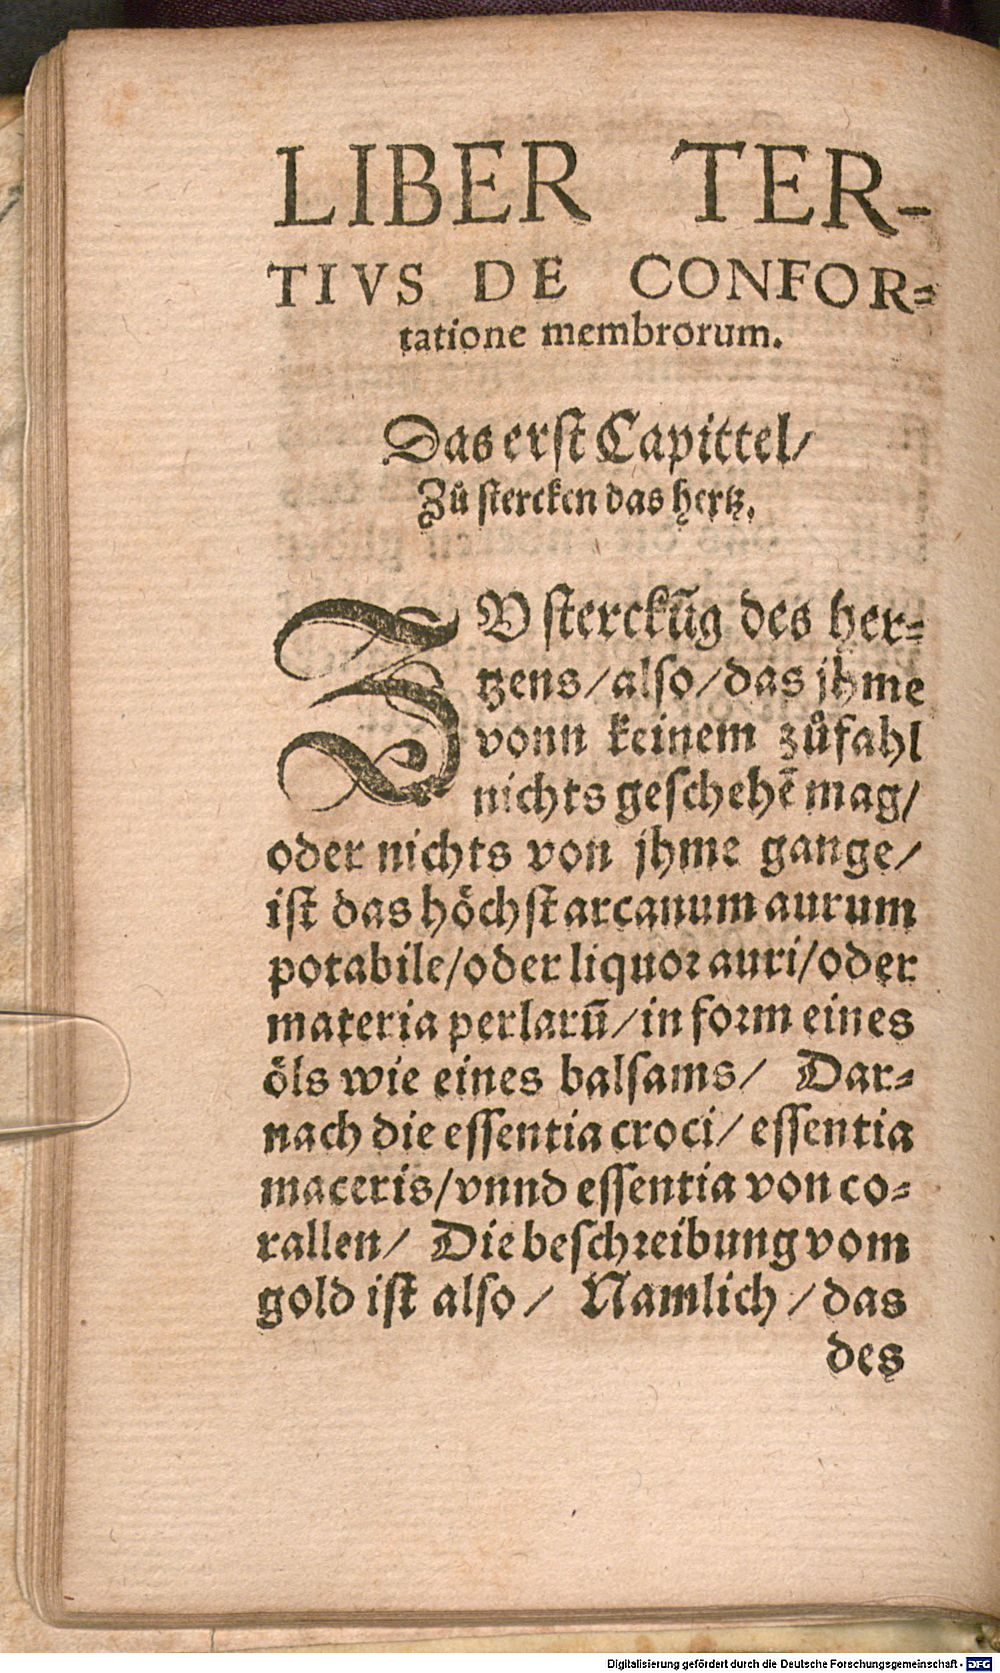 LIBER TER-
TIVS DE CONFOR-
tatione membrorum.
Das erst Capittel/
Zů stercken das hertz.
ZV sterckūg des her-
tzens/also/das jhme
vonn keinem zůfahl
nichts geschehē mag/
oder nichts von jhme gange/
ist das hoͤchst arcanum aurum
potabile/oder liquor auri/oder
materia perlarū/in form eines
oͤls wie eines balsams/ Dar-
nach die essentia croci/ essentia
maceris/vnnd essentia von co-
rallen/ Die beschreibung vom
gold ist also/ Namlich/das
des
Digitalisierung gefördert durch die Deutsche Forschungsgemeinschaft - DFG